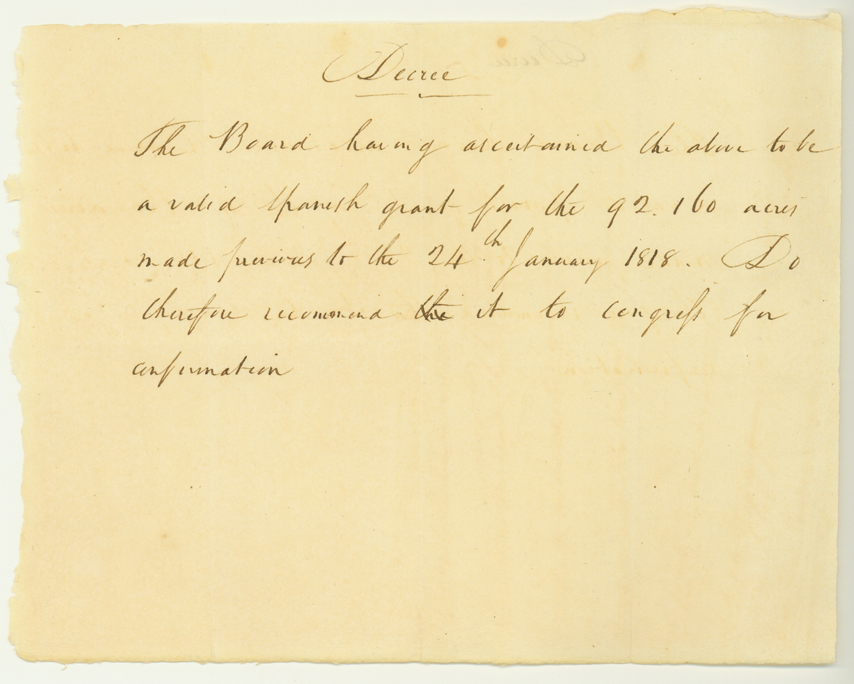 Decree
The Board having ascertained the above to be
a valid Spanish grant for the 92.160 acres
made previous to the 24th January 1818. Do
therefore recommend the it to congress for
confirmation